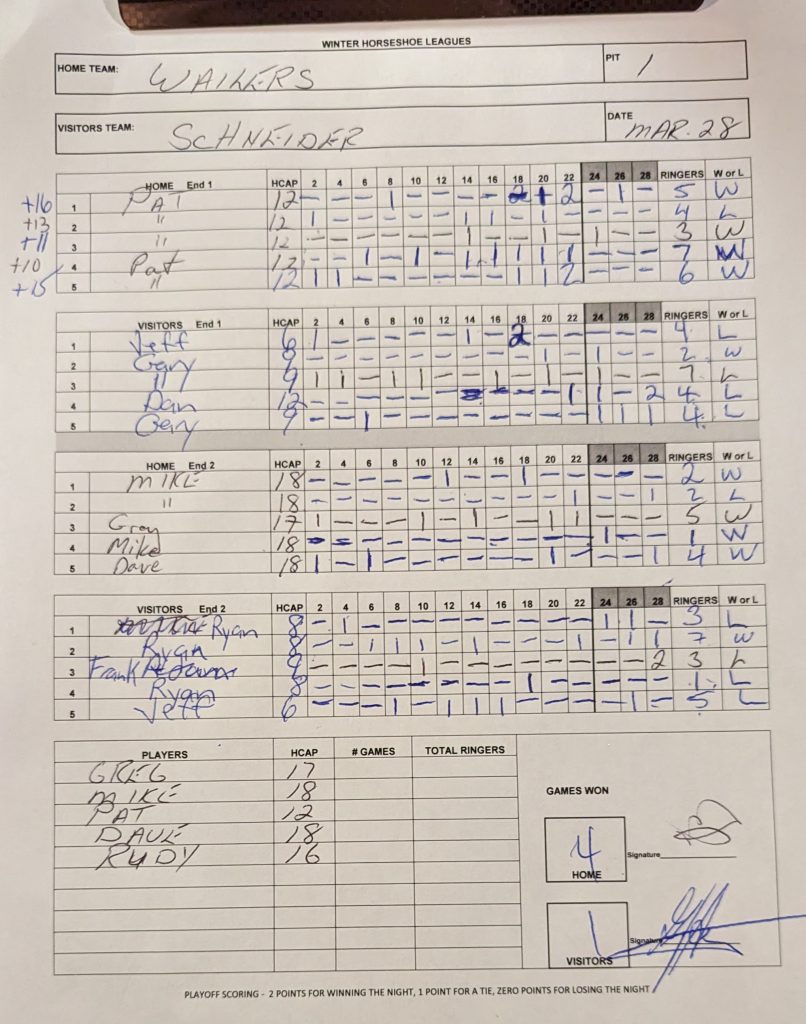 WINTER HORSESHOE LEAGUES
HOME TEAM: WAILERS PIT 1
VISITORS TEAM: SCHNEIDER DATE MAR. 28
HOME End 1 HCAP 2 4 6 8 10 12 14 16 18 20 22 24 26 28 RINGERS W or L
+16 1 PAT 12 - - - 1 - - - - 2 1 2 - 1 - 5 W
+13 2 " 12 1 - - - - - 1 1 - 1 - - - - 4 L
+11 3 " 12 - - - - - - 1 - - 1 - 1 - - 3 W
+10 4 Pat 12 - - 1 - 1 - 1 1 1 1 1 - - - 7 W
+15 5 " 12 1 1 - - - - - - 1 1 2 - - - 6 W
VISITORS End 1 HCAP 2 4 6 8 10 12 14 16 18 20 22 24 26 28 RINGERS W or L
1 Jeff 6 1 - - - - - 1 - 2 - - - - - 4 L
2 Gary 9 - - - - - - - - - 1 - 1 - - 2 W
3 " 9 1 1 - 1 1 - - 1 - 1 - 1 - - 7 L
4 Dan 12 - - - - - - - - - - 1 1 - 2 4 L
5 Gary 9 - - 1 - - - - - - - - 1 1 1 4 L
HOME End 2 HCAP 2 4 6 8 10 12 14 16 18 20 22 24 26 28 RINGERS W or L
1 MIKE 18 - - - - - 1 - - 1 - - - - - 2 W
2 " 18 - - - - - - - - - - 1 - - 1 2 L
3 Greg 17 1 - - - 1 - 1 - - 1 1 - - - 5 W
4 Mike 18 - - - - - - - - - - - 1 - - 1 W
5 Dave 18 1 - 1 - - - - - - 1 - - - 1 4 W
VISITORS End 2 HCAP 2 4 6 8 10 12 14 16 18 20 22 24 26 28 RINGERS W or L
1 Ryan 8 - 1 - - - - - - - - - 1 1 - 3 L
2 Ryan 8 - - 1 1 1 - 1 - - - 1 - 1 1 7 W
3 Frank 9 - - - - 1 - - - - - - - - 2 3 L
4 Ryan 8 - - - - - - - - 1 - - - - - 1 L
5 Jeff 6 - - - 1 - 1 1 1 - - - - 1 - 5 L
PLAYERS HCAP # GAMES TOTAL RINGERS
GREG 17
MIKE 18
PAT 12
DAVE 18
RUDY 16
GAMES WON
4
HOME
Signature
1
VISITORS
Signature
PLAYOFF SCORING - 2 POINTS FOR WINNING THE NIGHT, 1 POINT FOR A TIE, ZERO POINTS FOR LOSING THE NIGHT